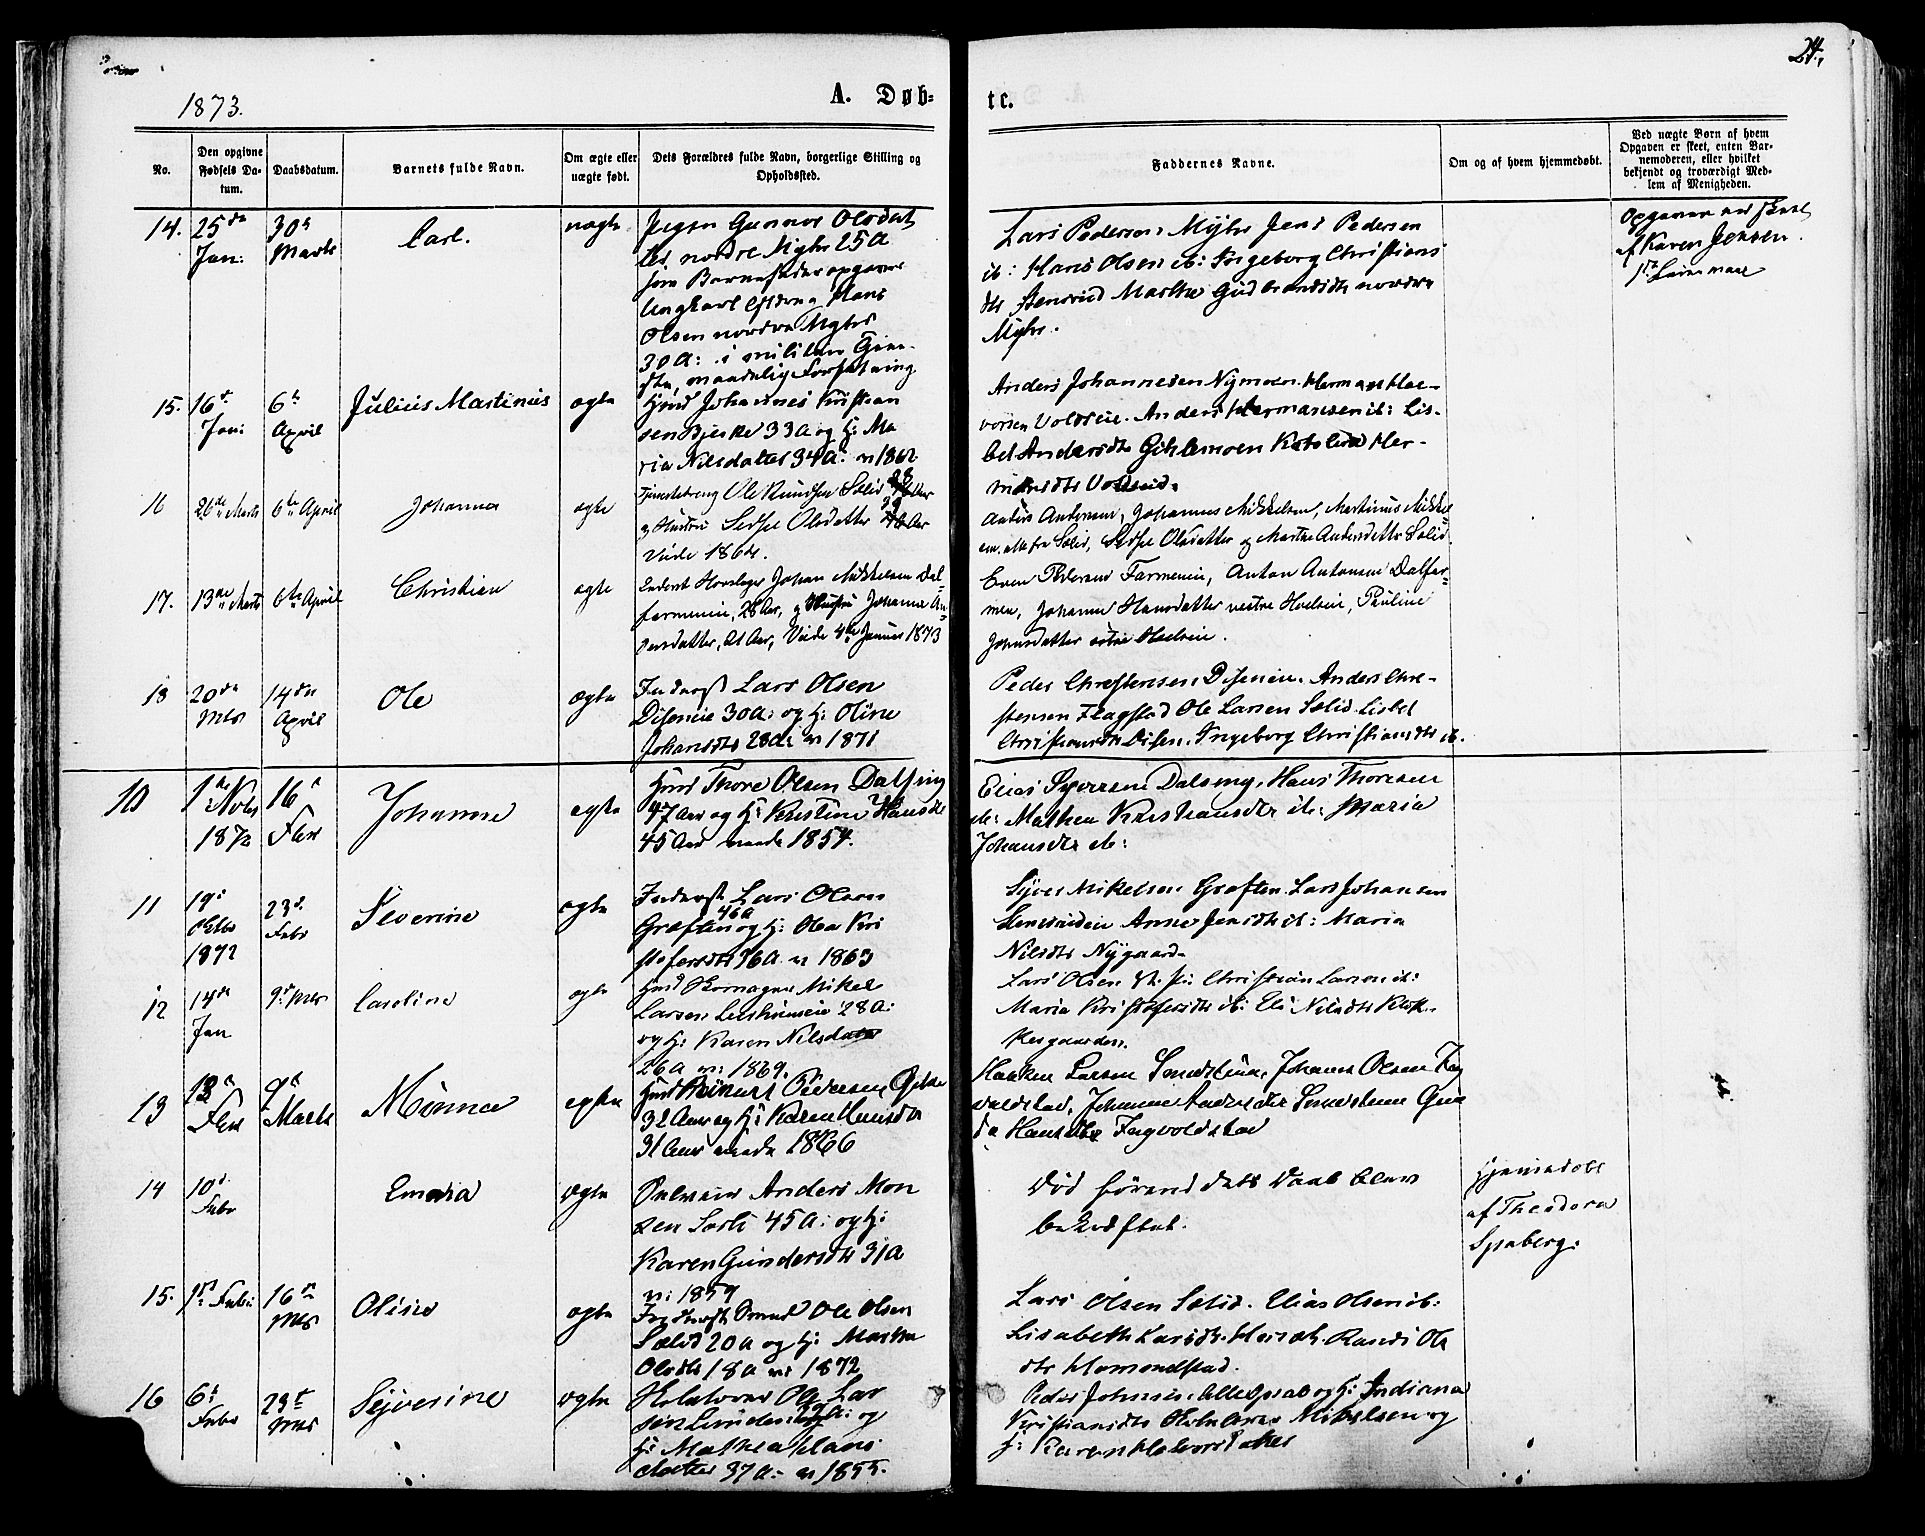 24.
1873.
A. Døb-
te.
No.
Den opgivne Fødsels Datum.
Daabsdatum.
Barnets fulde Navn.
Om ægte eller uægte født.
Dets Forældres fulde Navn, borgerlige Stilling og Opholdssted.
Faddernes Navne.
Om og af hvem hjemmedøbt.
Ved uægte Børn af hvem Opgaven er skeet, enten Barnemoderen, eller hvilket bekjendt og troværdigt Medlem af Menigheden.
14. 25de Jan: 30te Marts Carl. uægte
Pigen Gunnor Olsdat
ter nordre Myhr 25 A
som Barnefader opgives
Ungkarl Hans
Olsen nordre Myhr
30 A: i militær
Lars Pedersen Myhr Jens Pedersen
ib: Hans Olsen ib: Ingeborg Christians
dtr Stensrud Marthe Gudbrandsdtr nordre
Myhr.
Opgaven
af Karen Jensen
15. 16de Jan: 6te April Julius Martinius ægte
Hmd Johannes Kristian
sen Bjerke 33 A og H: Ma
ria Nilsdatter 34 A: v: 1862
Anders Johannesen Nymoen. Herman Hal-
vorsen Voldseie. Anders Hermansen ib: Lis-
bet Andersdtr Gihlemoen Her-
mansdtr
16 26de Marts 6te April Johanna ægte
Ole Knudsen Sølid
og Hustru Sedsel Olsdatter Aar
Viede 1864.
Anders Andersen, Johannes Mikkelsen, Martinus Mikkel
sen, alle fra Sølid, Sedsel Olsdatter og Marthe Andersdatter Sølid
17. 13de Marts 6te April Christian ægte
Inderst Johan Mikkelsen Dal-
farmeneie, 28 Aar, og Hustru Johanna An-
dersdatter, 21 Aar, Viede 4de Januar 1873
Even Pedersen Farmeneie, Anton Antonsen Dalfar-
men, Johanne Hansdatter vestre Hoelseie, Pauline
Johnsdatter
18 20de Mts 14de April Ole ægte
Inderst Lars Olsen
Diseneie 30 A: og H: Oline
Johansdtr 28 A: v: 1871
Peder Christensen Diseneie. Anders Chri-
stensen Flagstad Ole Larsen Sølid Lisbet
Christiansdtr Disen. Ingeborg Christiansdtr ib.
10 1ste Novbr 1872 16de Febr Johanne ægte
Hmd Thore Olsen Dalseng
47 Aar og H: Kristine Hansdtr
45 Aar viede 1854.
Elias Syversen Dalseng, Hans Thoresen
ib: Mathea Kristiansdtr ib: Maria
Johansdtr ib:
11 19: Oktbr 1872 23de Febr Severine ægte
Inderst Lars Olsen
Græften 46 A og H: Olea Kri
stofersdtr 36 A v: 1863
Syver Mikelsen Græften. Lars Johansen
Anne Jensdtr ib: Maria
Nilsdtr Nygaard.
12 14de Jan 9de Mts Caroline ægte
Hmd Skomager Mikel
Larsen 28 A:
og H: Karen Nilsdatter
26 A v: 1869.
Lars Olsen Christian Larsen ib:
Maria Kristofersdtr ib: Eli Nilsdtr Klok-
kergaarden.
13 Febr 9de Marts Minna ægte
Hmd Pedersen
32 Aar og H: Karen Hansdtr
31 Aar viede 1866
Haaken Larsen Smedstuen, Johannes Olsen Ing
valdstad, Johanne Andersdtr Smedstuen
Hansdtr Ingvoldstad
14 10de Febr Emma ægte
Anders Mon
sen 45 A: og H:
Karen Gundersdtr 31 A
v: 1859
Død førend dets Daab blev
bekræftet.
Hjemmedøbt
af Theodora
Spaberg:
15. 1ste Febr: 16de Mts Oline ægte
Ole Olsen
Sølid 20 A og H: Marthe
Olsdtr 18 A v: 1872
Lars Olsen Sølid. Elias Olsen ib:
Lisabeth Larsdtr Randi Ols
dtr Homondstad.
16 6te Febr 23de Mts Syverine ægte
Ole Lar
sen og
H: Mathea Hans
datter 37 A: v: 1855.
Johnsen og H: Indiana
Kristiansdtr Mikelsen og
H: Karen Halvorsdatter